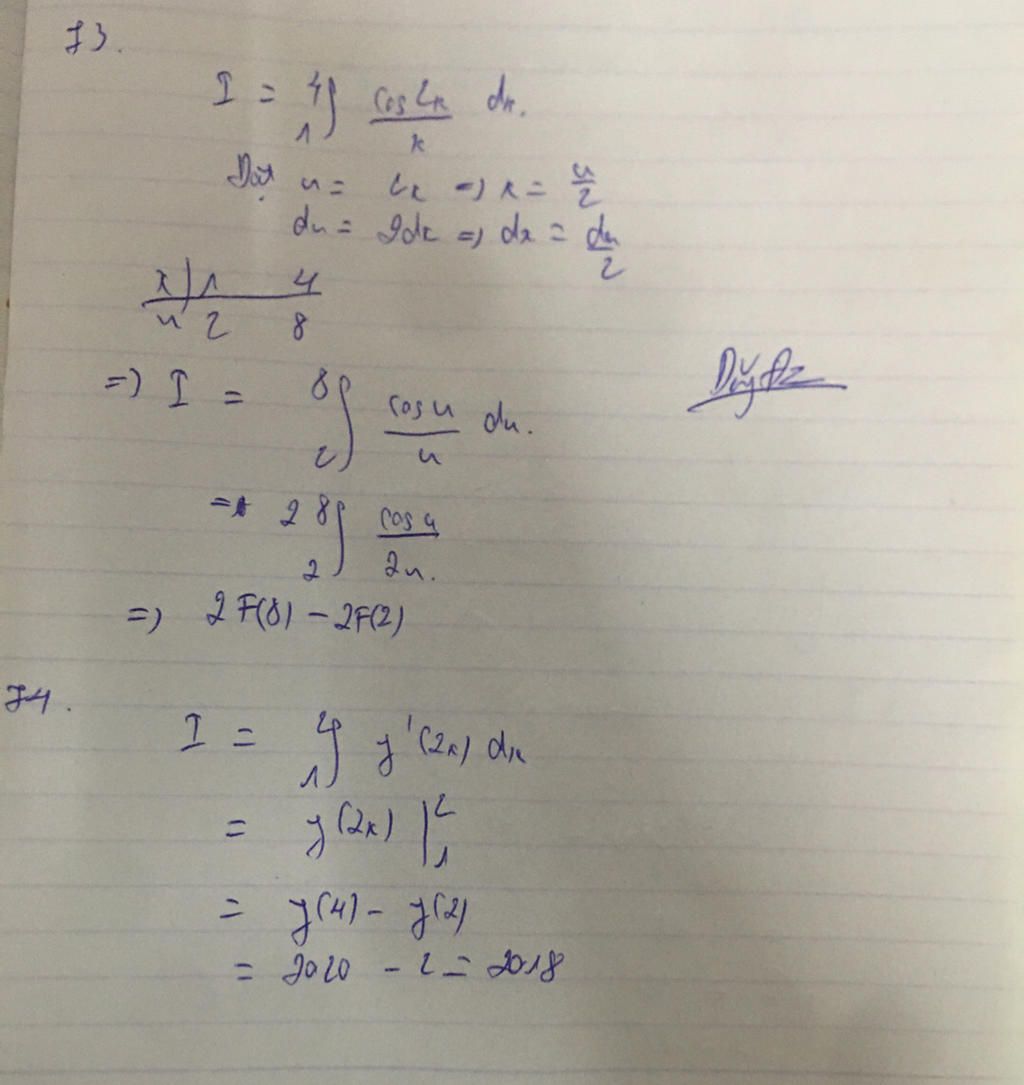 73.
I = ₁∫⁴ cos2x/x dx.
Đặt u = 2x => x = u/2
du = 2dx => dx = du/2
x | 1 4
u 2 8
=> I = ₂∫⁸ cosu/u du.
= 2 ₂∫⁸ cosu/2u.
=> 2F(8) - 2F(2)
74.
I = ₁∫² y'(2x) dx
= y(2x) |₁²
= y(4) - y(2)
= 2020 - 2 = 2018